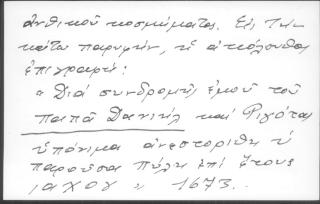 ἀνθικοῦ κοσμήματος. Εἰς τὴν
κάτω παρυφήν, ἡ ἀκόλουθος
ἐπιγραφή:
" Διά συνδρομῆς ἐμοῦ τοῦ
παπᾶ Δανιήλ καί Ριγότα
ὑπόνιμα ἀνεστορίθη ἡ
παροῦσα πύλη ἐπί ἔτους
ͺαχογ " 1673.